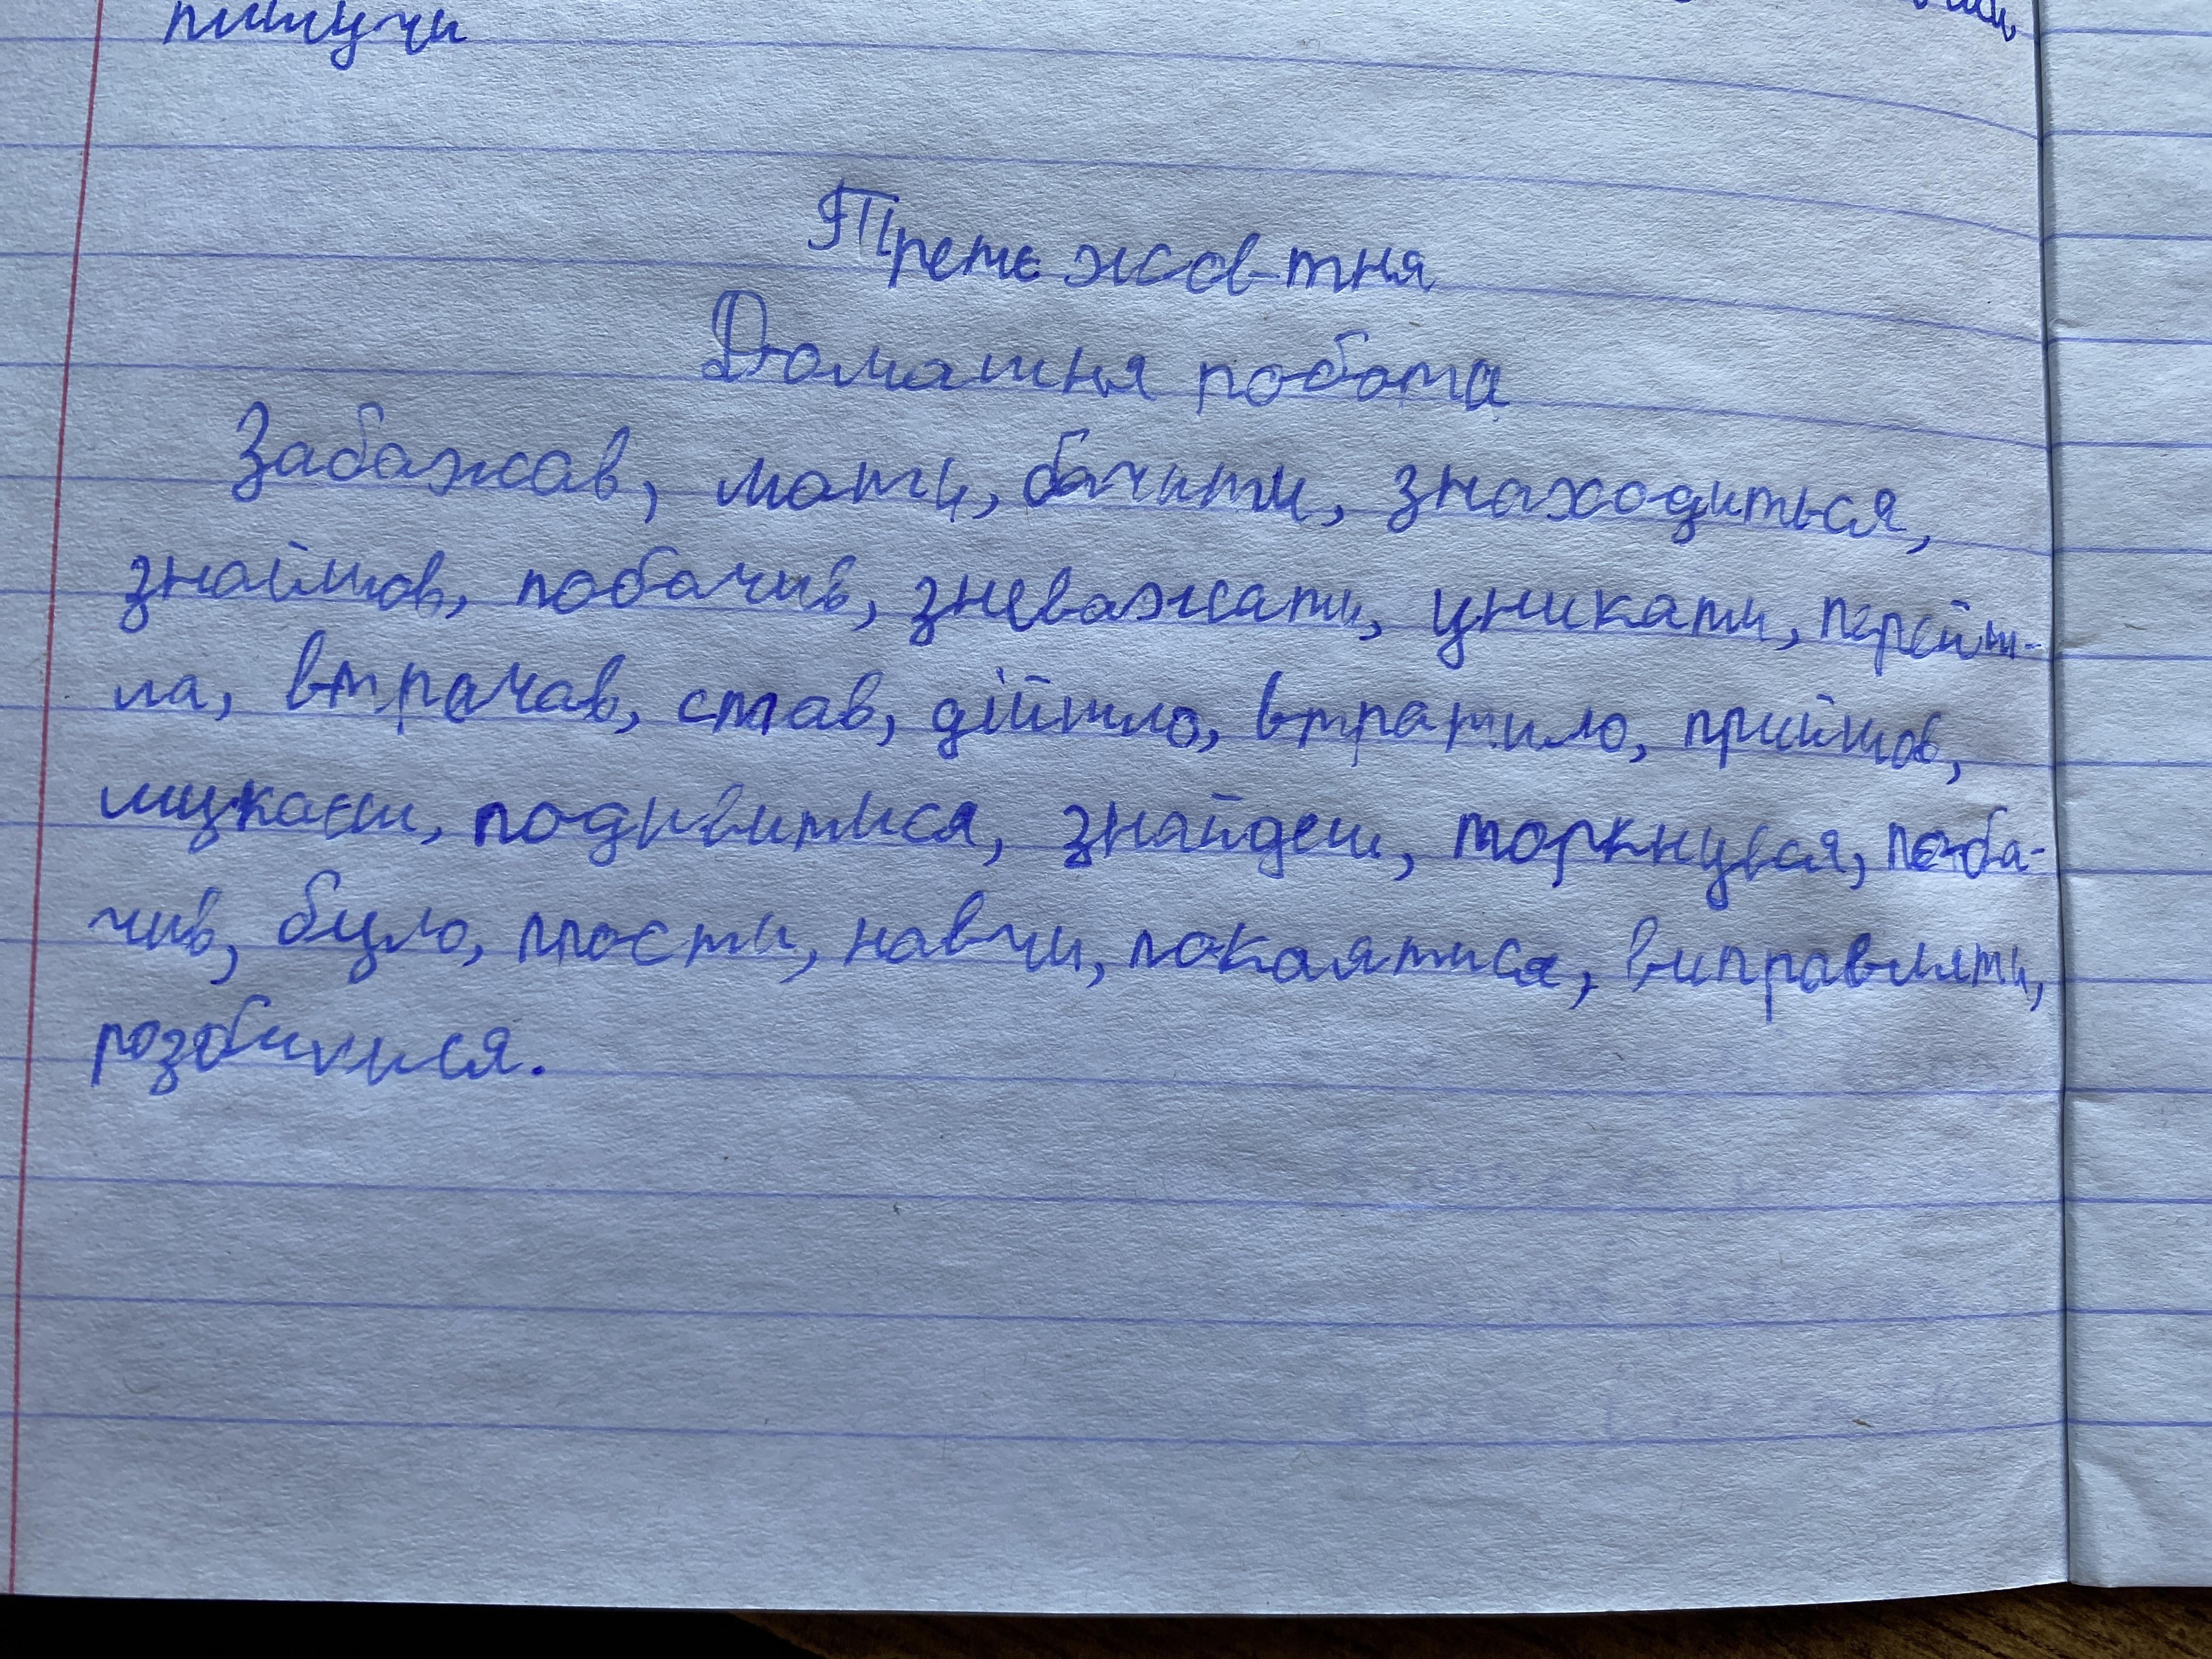 пишучи
Третє жовтня
Домашня робота
Забажав, мати, бачити, знаходиться,
знайшов, побачив, зневажати, уникати, перейш-
ла, втрачав, став, дійшло, втратило, прийшов,
шукаєш, подивитися, знайдеш, торкнувся, поба-
чив, було, прости, навчи, покаятися, виправляти,
розбилися.